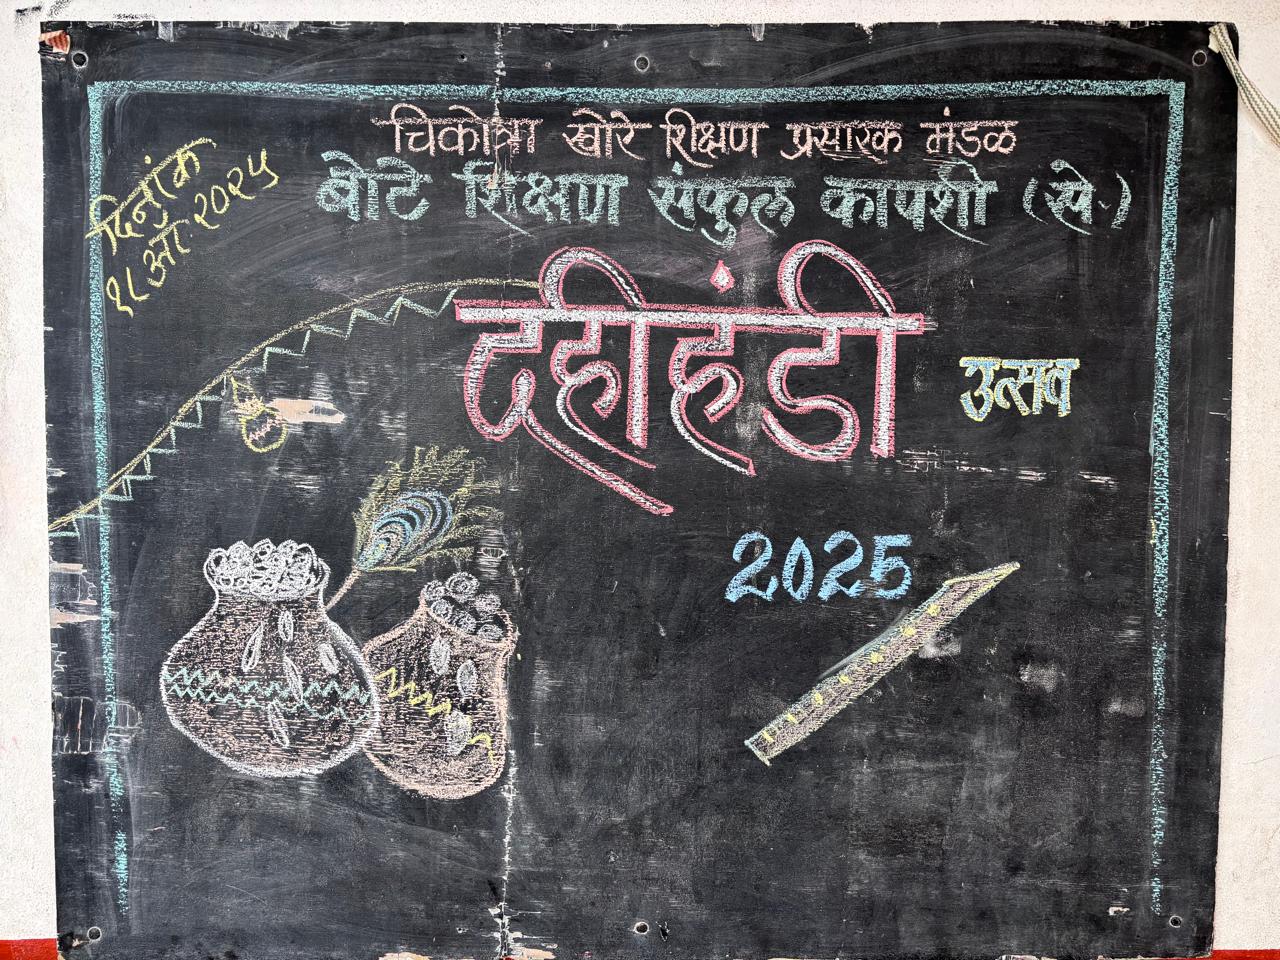 चिकोत्रा खोरे शिक्षण प्रसारक मंडळ
बोटे शिक्षण संकुल कापशी (से.)
दिनांक
१८ ऑ. २०२५
दहीहंडी
उत्सव
2025